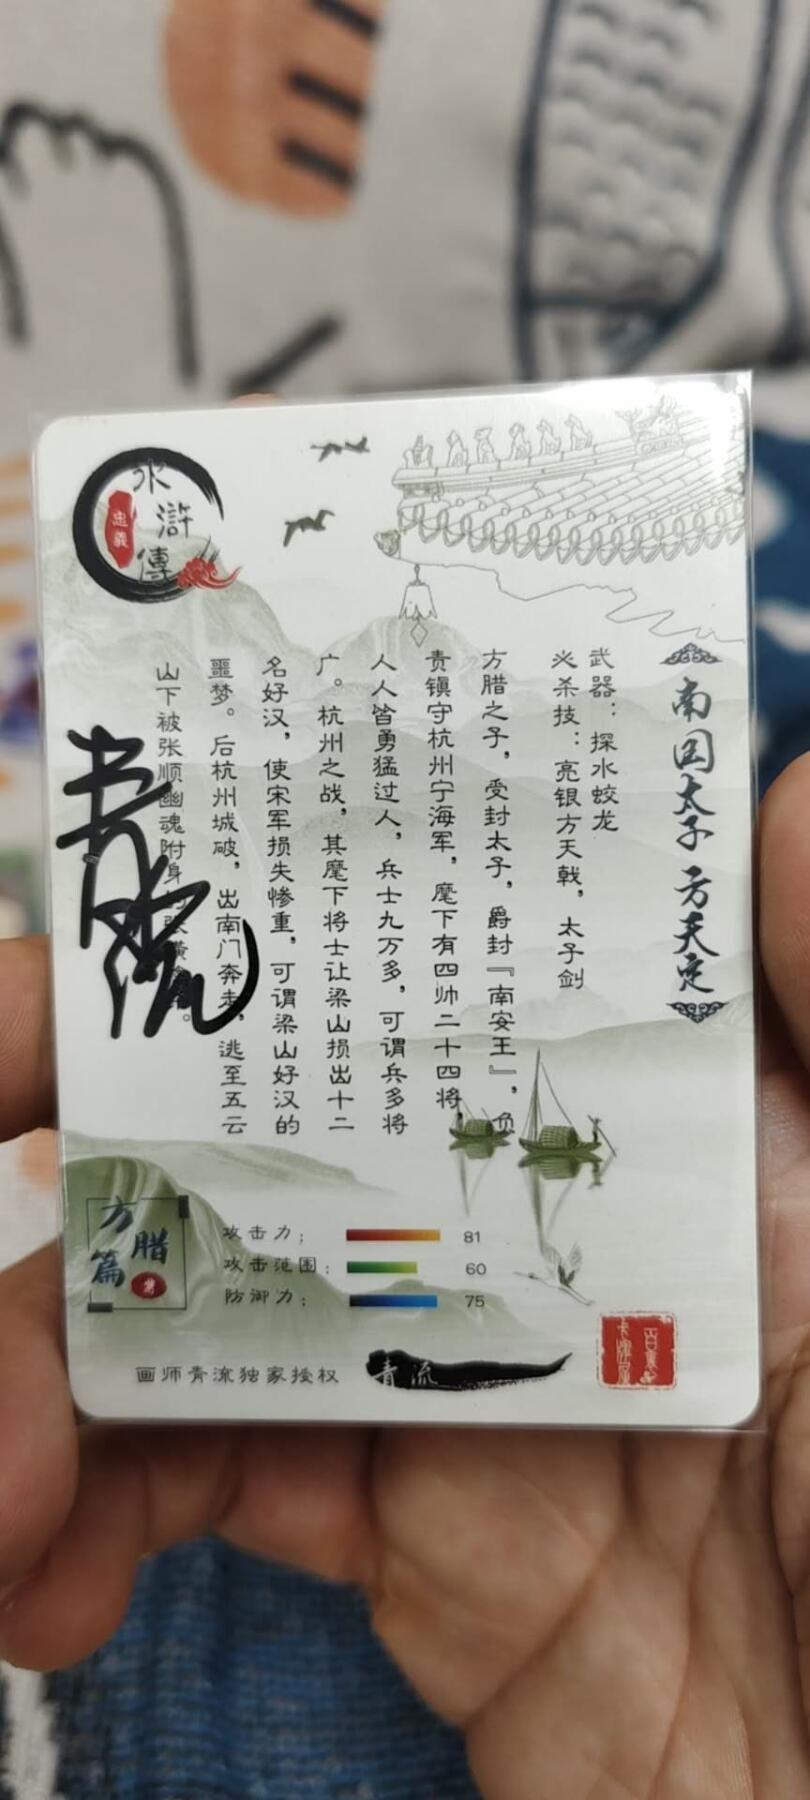 水浒傳
忠義
南国太子 方天定
武器：探水蛟龙
必杀技：亮银方天戟，太子剑
方腊之子，受封太子，爵封『南安王』，负
责镇守杭州宁海军，麾下有四帅二十四将，
人人皆勇猛过人，兵士九万多，可谓兵多将
广。杭州之战，其麾下将士让梁山损出十二
名好汉，使宋军损失惨重，可谓梁山好汉的
噩梦。后杭州城破，出南门奔走，逃至五云
山下被张顺幽魂附身的张横
方腊篇
攻击力： 81
攻击范围： 60
防御力： 75
画师青流独家授权
青流
青流